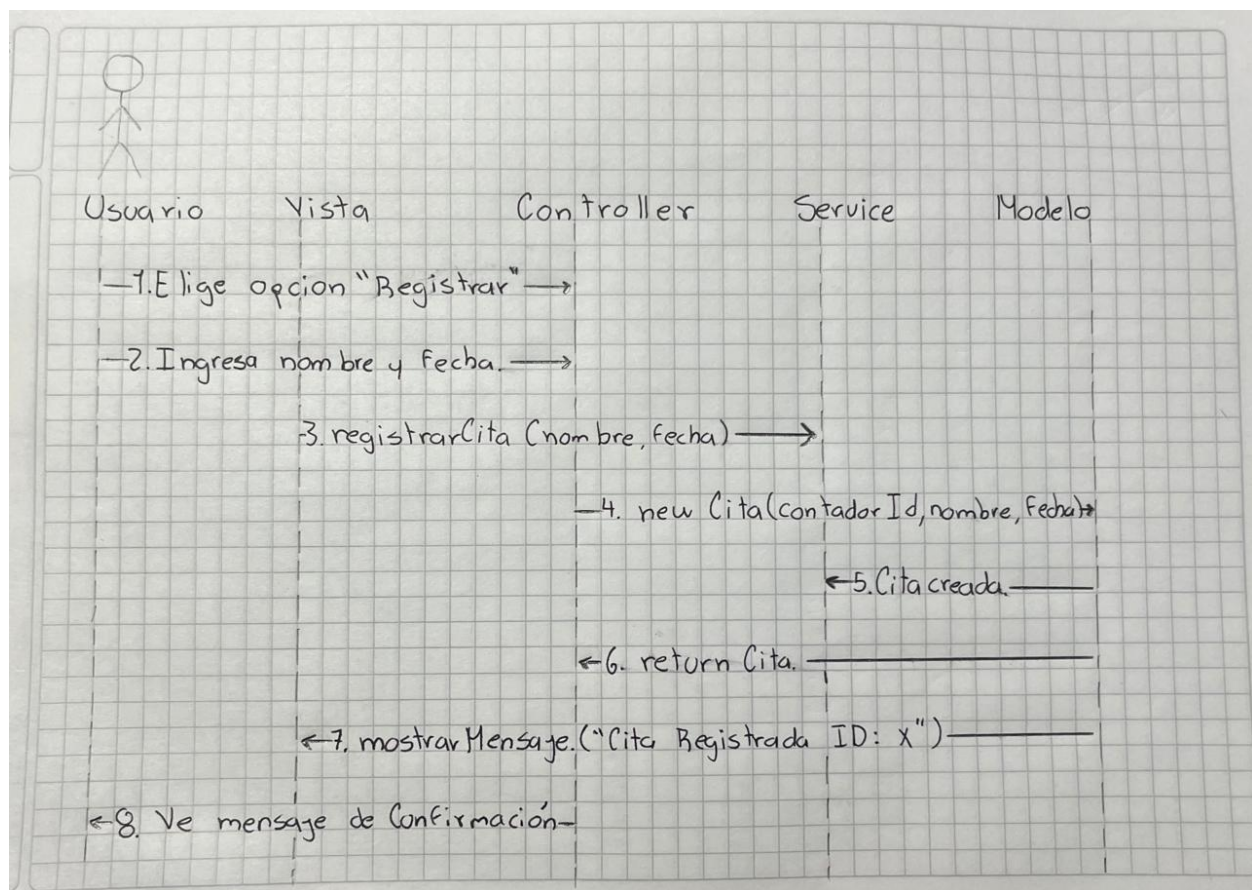 Usuario Vista Controller Service Modelo
1. Elige opcion "Registrar"
2. Ingresa nombre y fecha.
3. registrarCita (nombre, fecha)
4. new Cita(contador Id, nombre, fecha)
5. Cita creada.
6. return Cita.
7. mostrarMensaje. ("Cita Registrada ID: X")
8. Ve mensaje de Confirmación